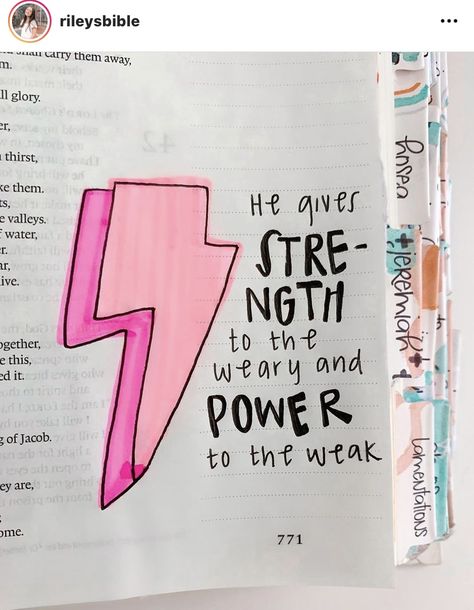 rileysbible
shall carry them away,
m.
ll glory.
er,
thirst,
ke them.
ts,
e valleys.
f water,
r.
ar,
ive.
ogether,
e this,
ed it.
g of Jacob.
ey are,
;
ome.
He gives
STRE-
NGTH
to the
weary and
POWER
to the weak
771
hosea
jeremiah
lamentations